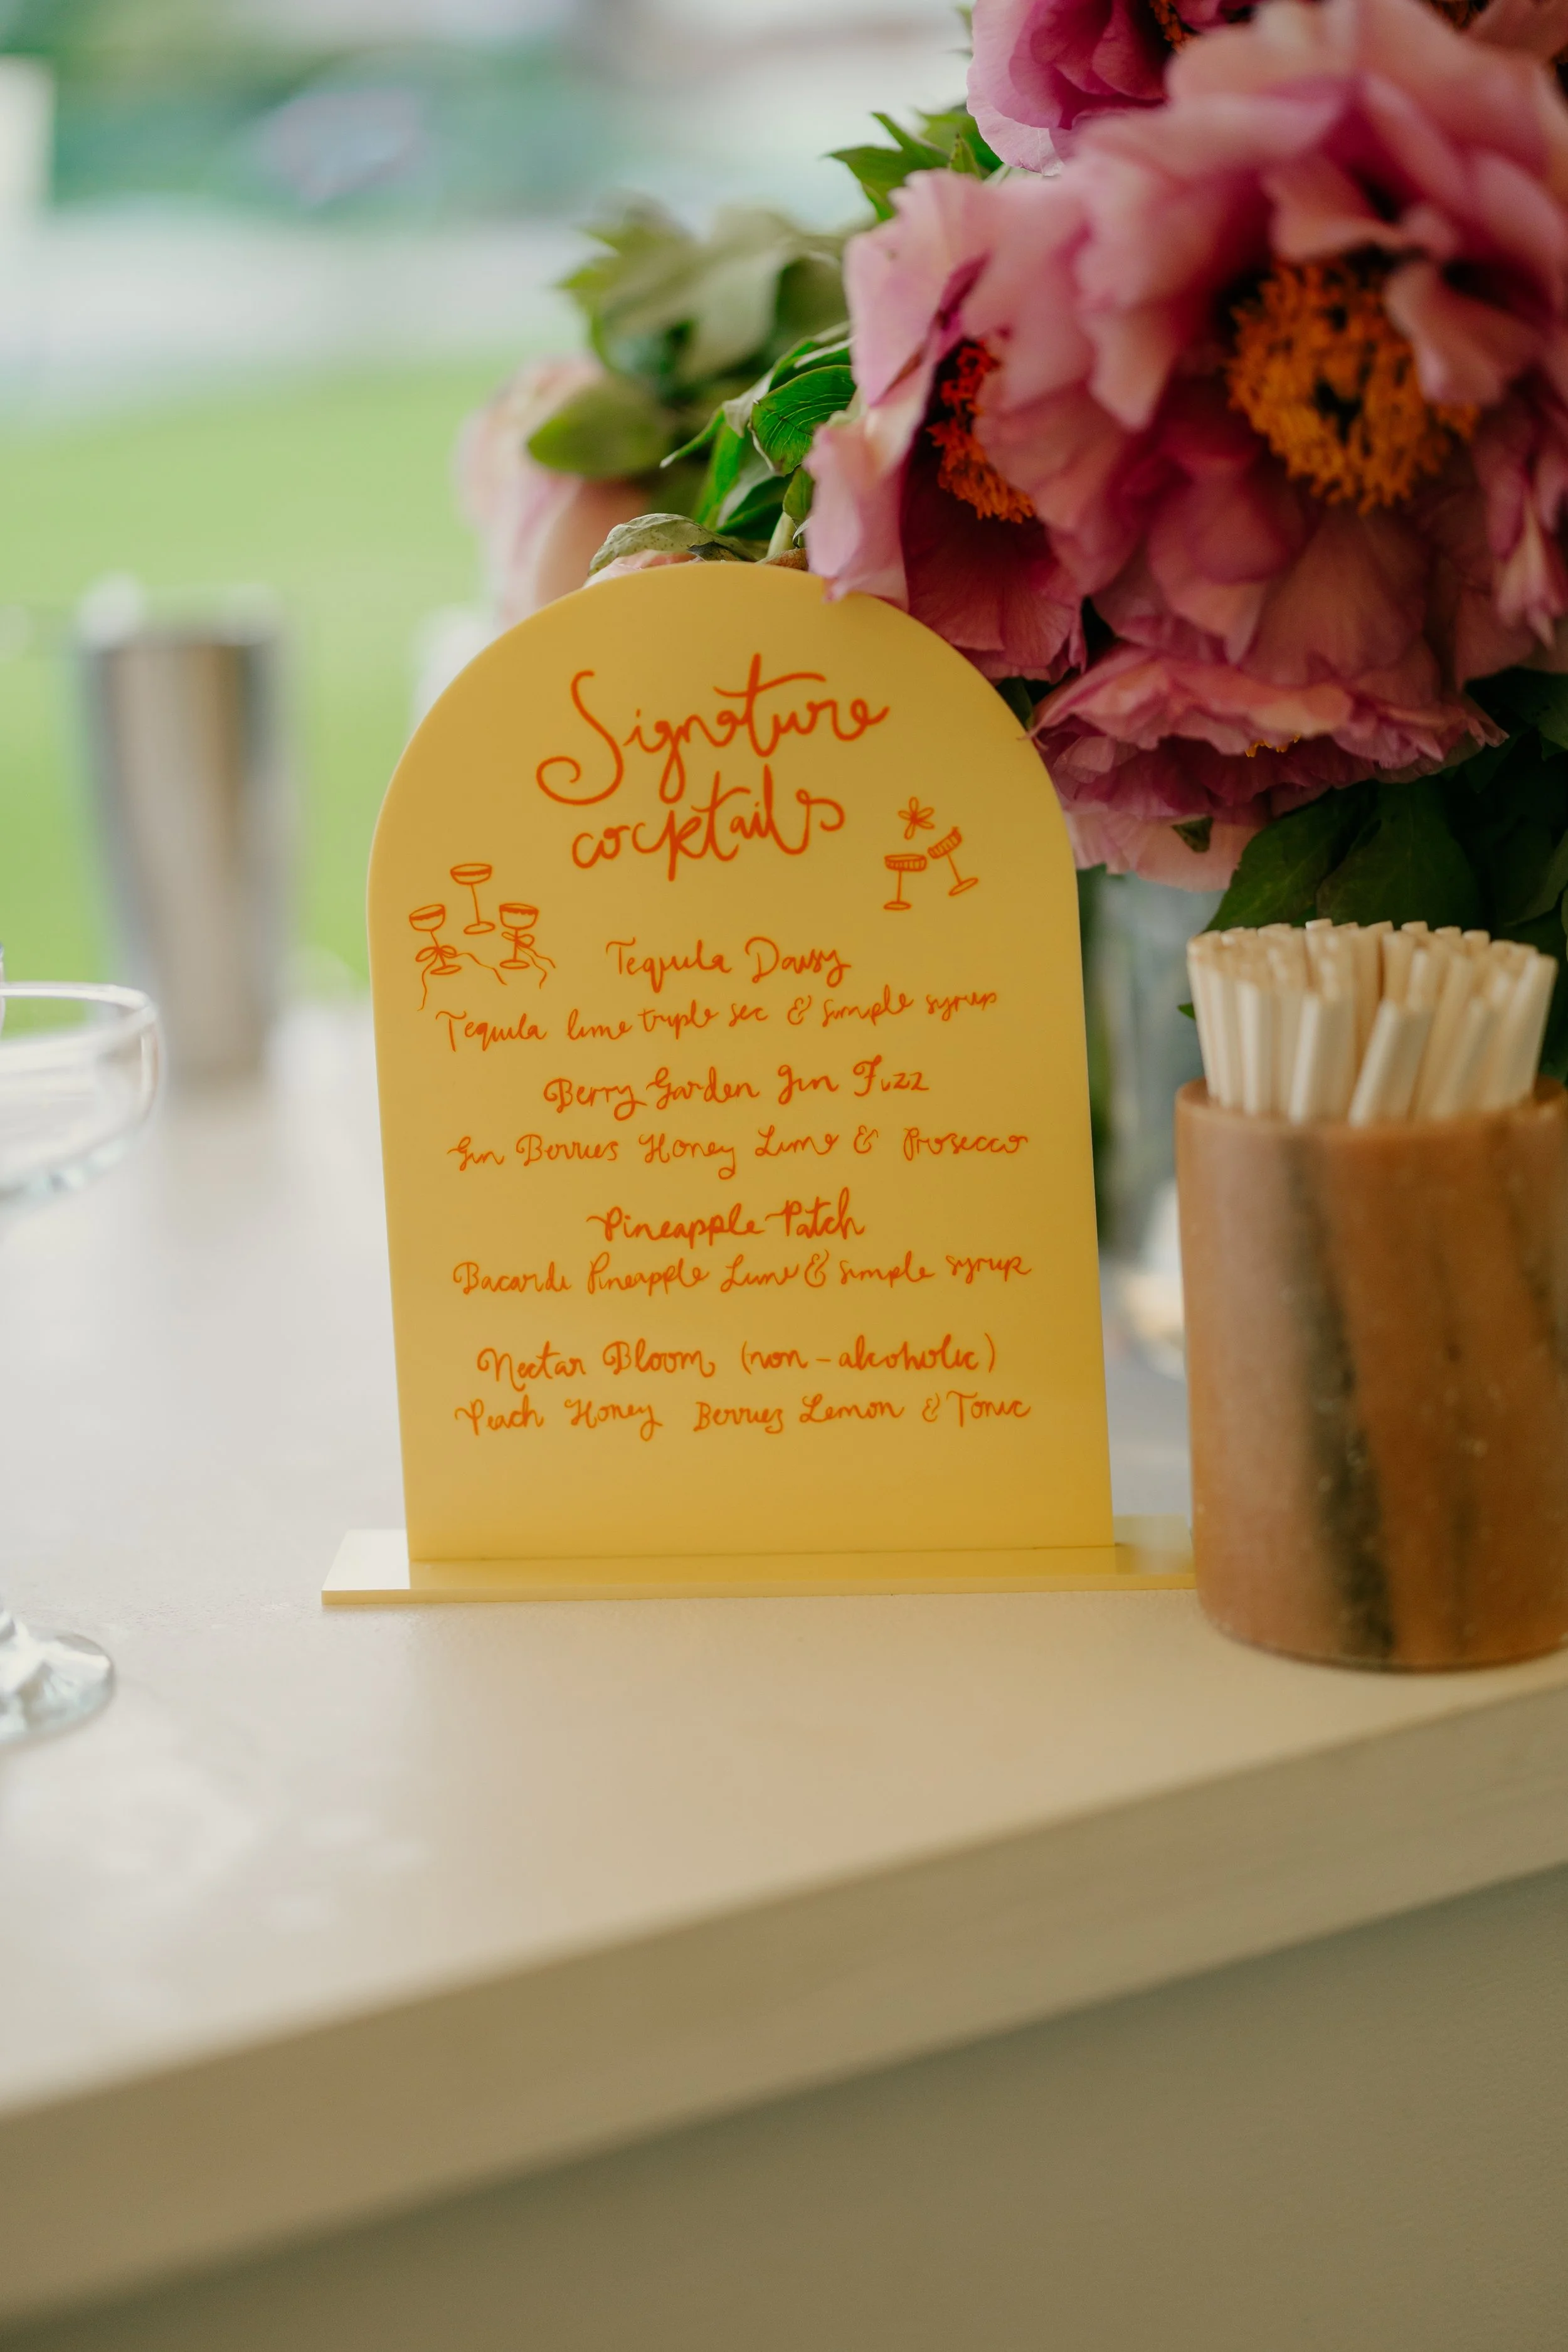 Signature
cocktails
Tequila Daisy
Tequila lime triple sec & simple syrup
Berry Garden Gin Fizz
Gin Berries Honey Lime & Prosecco
Pineapple Patch
Bacardi Pineapple Lime & simple syrup
Nectar Bloom (non-alcoholic)
Peach Honey Berries Lemon & Tonic